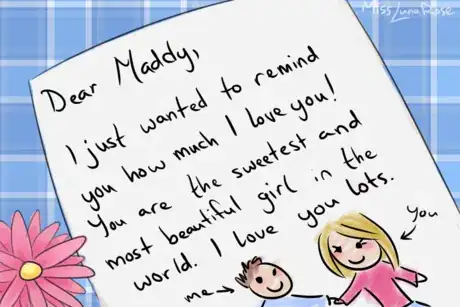 MissLunaRose
Dear Maddy,
I just wanted to remind
you how much I love you!
You are the sweetest and
most beautiful girl in the
world. I love you lots.
You
me